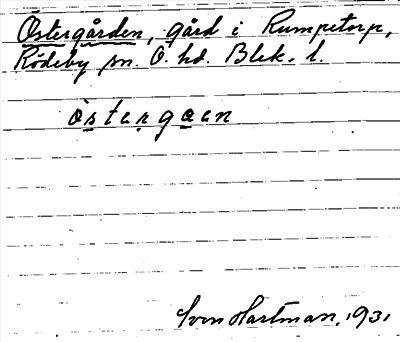 Östergården, gård i Rumpetorp,
Rödeby sn. Ö. hd. Blek. l.
östergaen
Sven Hartman, 1931